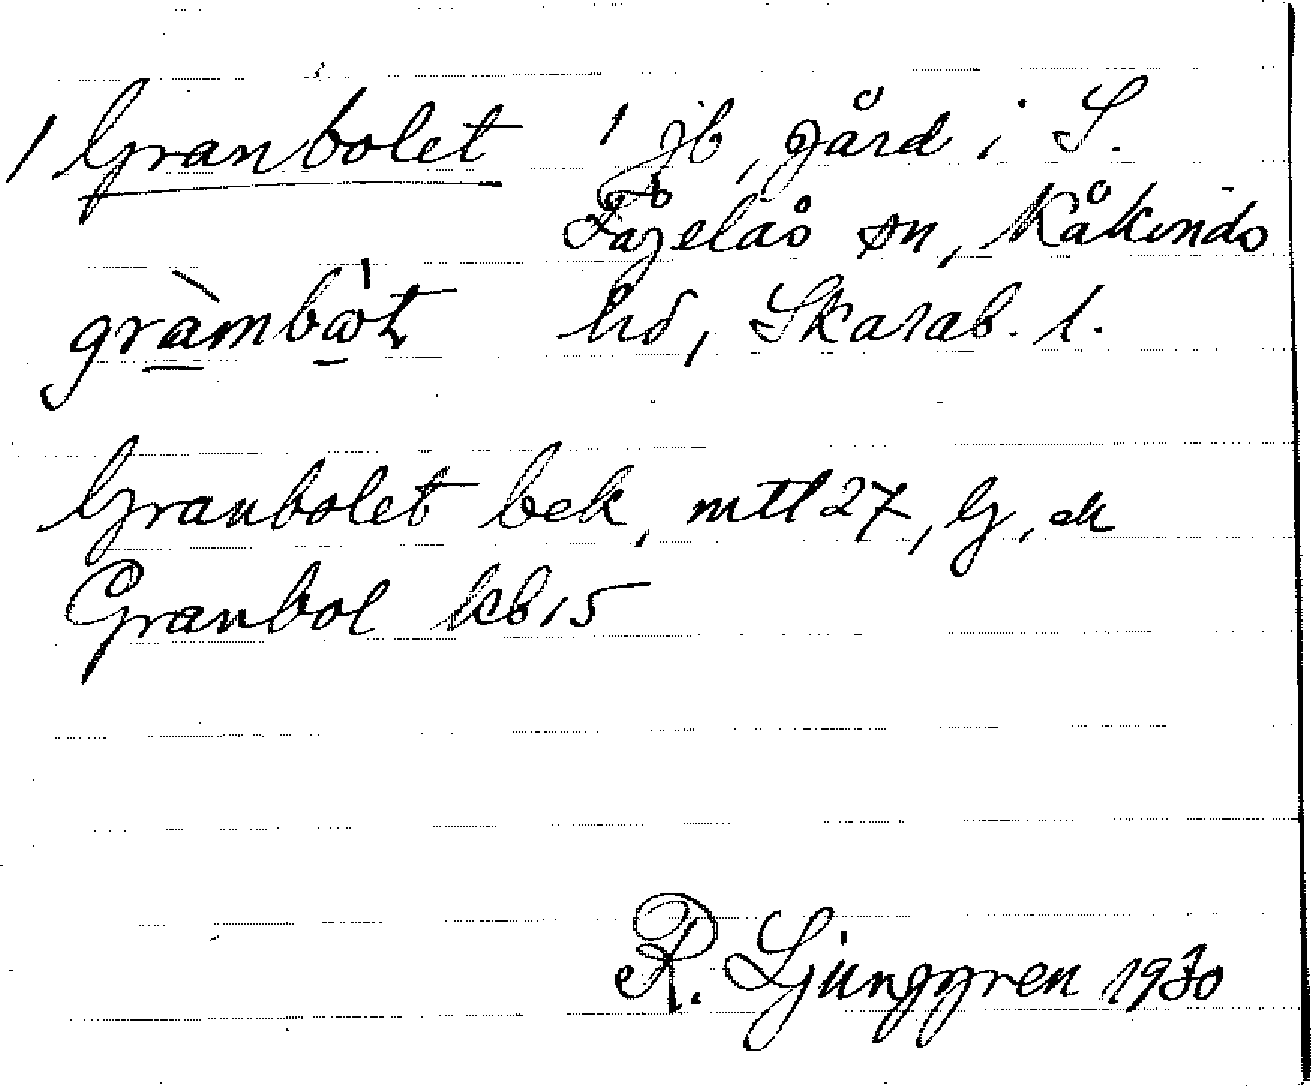 1 Granbolet 1 jb, gård i S.
Fågelås sn, Kåkinds
gràmbò̀t hd, Skarab. l.
Granbolet bek, mtl 27, G, ek
Granbol kb 15
R. Ljunggren 1930